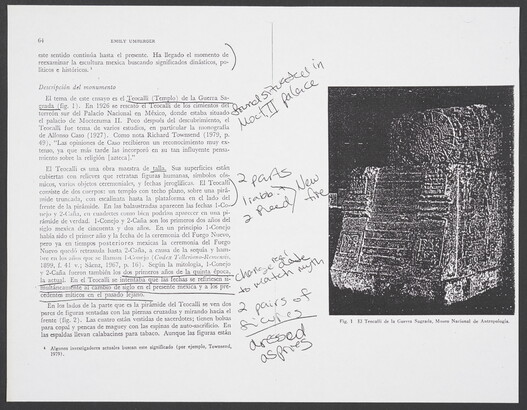 64
EMILY UMBERGER
este sentido continúa hasta el presente. Ha llegado el momento de
reexaminar la escultura mexica buscando significados dinásticos, po-
líticos e históricos.
Descripción del monumento
El tema de este ensayo es el Teocalli (Templo) de la Guerra Sa-
grada (fig. 1). En 1926 es rescató el Teocalli de los cimientos del
torreón sur del Palacio Nacional en México, donde estaba situado
el palacio de Moctezuma II. Poco después del descubrimiento, el
Teocalli fue tema de varios estudios, en particular la monografía
de Alfonso Caso (1927). Como nota Richard Townsend (1979, p.
49), "Las opiniones de Caso recibieron un reconocimiento muy ex-
tenso, ya que más tarde las incorporó en su tan influyente pensa-
miento sobre la religión [azteca]."
El Teocalli es una obra maestra de talla. Sus superficies están
cubiertas con relieves que retratan figuras humanas, símbolos cós-
micos, varios objetos ceremoniales, y fechas jeroglíficas. El Teocalli
consiste de dos cuerpos: un templo con techo plano, sobre una pirá-
mide truncada, con escalinata hasta la plataforma en el lado del
frente de la pirámide. En las balaustradas aparecen las fechas 1-Co-
nejo y 2-Caña, en cuadretes como bien podrían aparecer en una pi-
rámide de verdad. 1-Conejo y 2-Caña son los primeros dos años del
siglo mexica de cincuenta y dos años. En un principio 1-Conejo
había sido el primer año y la fecha de la ceremonia del Fuego Nuevo,
pero ya en tiempos posteriores mexicas la ceremonia del Fuego
Nuevo quedó retrasada hasta 2-Caña, a causa de la sequía y ham-
bre en los años que se llaman 1-Conejo (Codex Telleriano-Remensis,
1899, f. 41 v.; Sáenz, 1967, p. 16). Según la mitología, 1-Conejo
y 2-Caña fueron también los dos primeros años de la quinta época,
la actual. En el Teocalli se intentaba que las fechas se refiriesen si-
multáneamente al cambio de siglo en el presente mexica y a los pre-
cedentes míticos en el pasado lejano.
En los lados de la parte que es la pirámide del Teocalli se ven dos
pares de figuras sentadas con las piernas cruzadas y mirando hacia el
frente (fig. 2). Las cuatro están vestidas de sacerdotes; tienen bolsas
para copal y pencas de maguey con las espinas de auto-sacrificio. En
las espaldas llevan calabacines para tabaco. Aunque las figuras están
4 Algunos investigadores actuales buscan este significado (por ejemplo, Townsend,
1979).
found situated in
Moc II palace
2 parts
1 rabb.
2 Reed
New
fire
change
to match myth
2 pairs of
dressed
Fig. 1 El Teocalli de la Guerra Sagrada, Museo Nacional de Antropología.